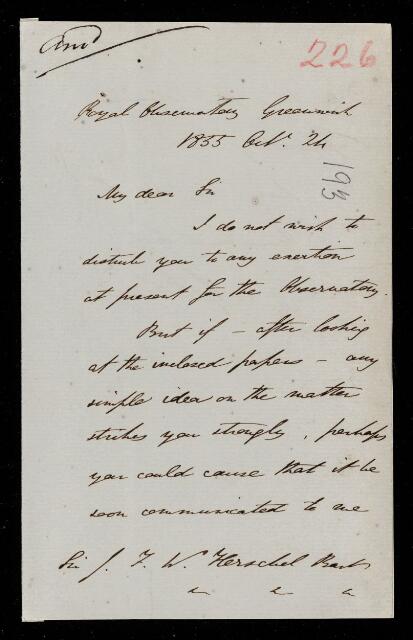 Ansd
226
Royal Observatory Greenwich
1855 Octr. 24
193
My dear Sir
I do not wish to
disturb you to any exertion
at present for the Observatory.
But if – after looking
at the inclosed papers – any
simple idea on the matter
strikes you strongly, perhaps
you could cause that it be
soon communicated to me
Sir J. F. W. Herschel Bart